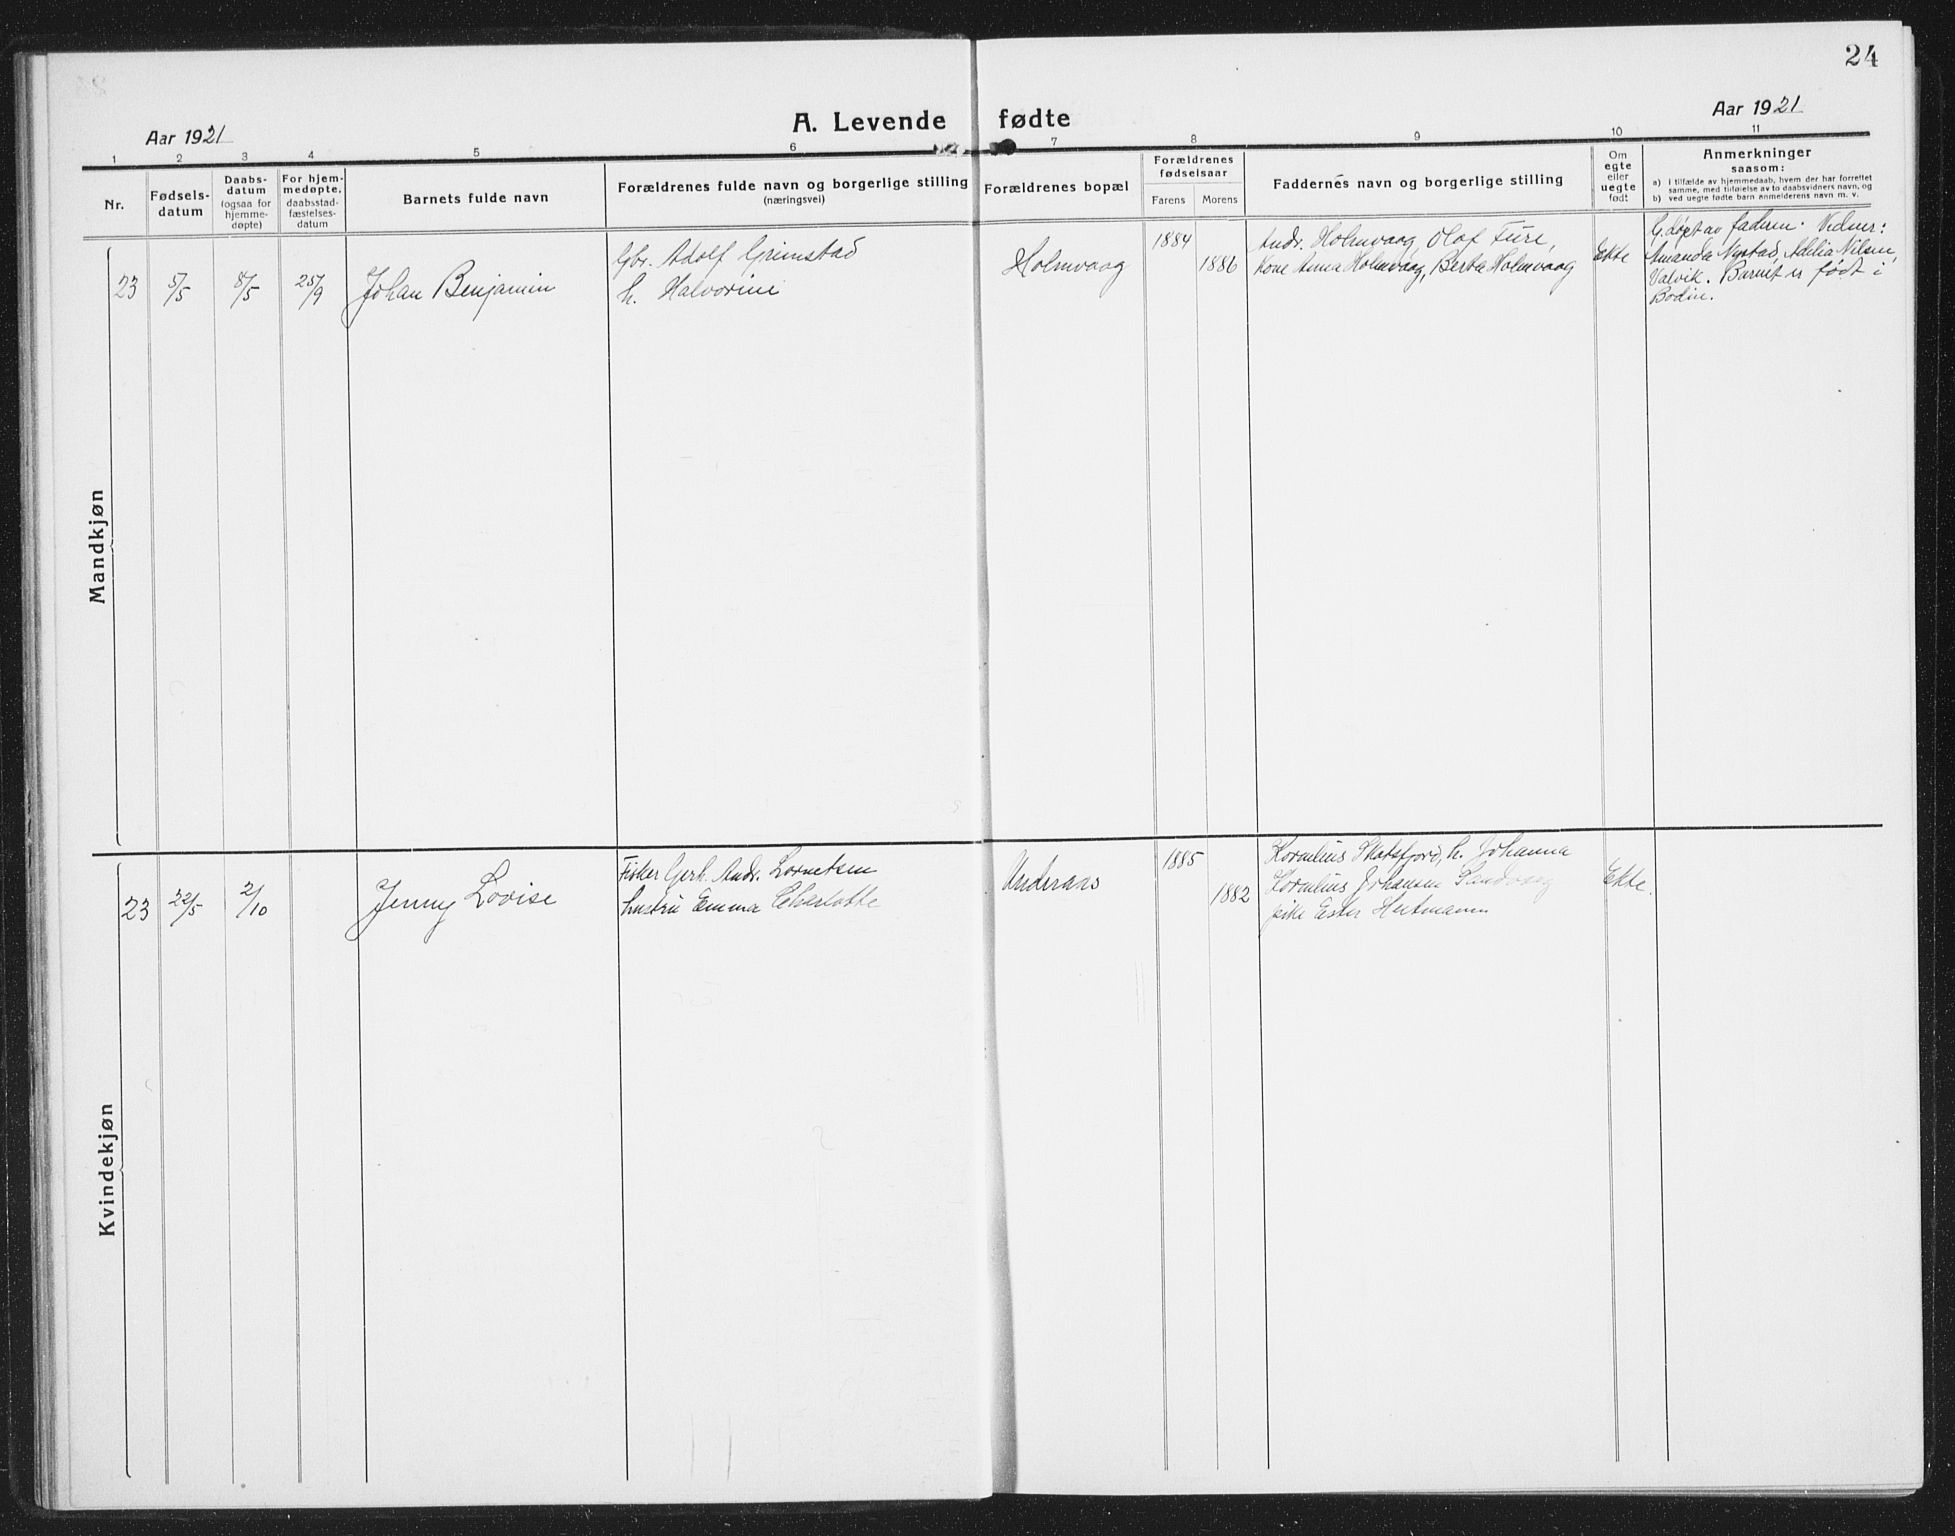 24
Aar 1921
A. Levende fødte
Aar 1921
1 2 3 4 5 6 7 8 9 10 11
Nr.
Fødsels-
datum
Daabs-
datum
(ogsaa for
hjemme-
døpte)
For hjem-
medøpte,
daabsstad-
fæstelses-
datum
Barnets fulde navn
Forældrenes fulde navn og borgerlige stilling
(næringsvei)
Forældrenes bopæl
Forældrenes
fødselsaar
Farens Morens
Faddernes navn og borgerlige stilling
Om
egte
eller
uegte
født
Anmerkninger
saasom:
a) i tilfælde av hjemmedaab, hvem der har forrettet
samme, med tilføielse av to daabsvidners navn, og
b) ved uegte fødte barn anmelderens navn m. v.
Mandkjøn
23
5/5
8/5
25/9
Johan Benjamin
Gbr. Adolf Grimstad
h. Halvorine
Holmvaag
1884
1886
Andr. Holmvaag, Olaf Fure,
Kone Anna Holmvaag, Berta Holmvaag
Ekte
G. døpt av faderen. Vidner:
Amanda Nystad, Adelia Nilsen,
Valvik. Barnet er født i
Bodin.
Kvindekjøn
23
22/5
2/10
Jenny Lovise
Fisker Gerh. Andr. Lorentsen
hustru Emma Charlotte
Underaas
1885
1882
Kornelius Skotsfjord, h. Johanna
Kornelius Johansen Sandvaag
pike Ester Hertmann
Ekte.